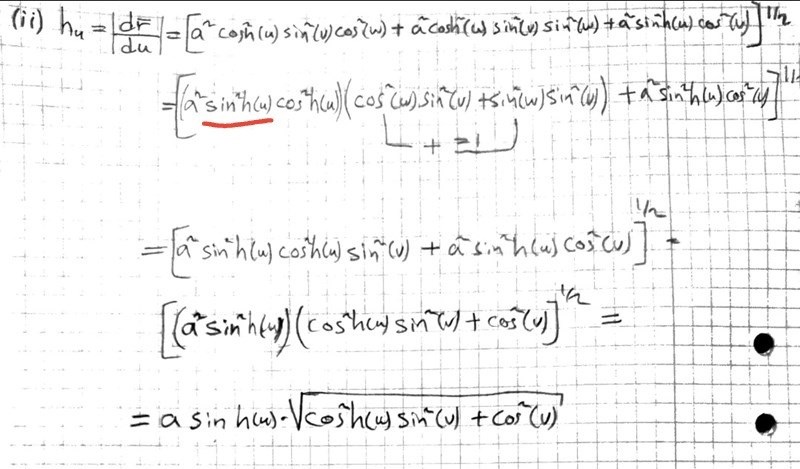 (ii) hᵤ = |dr̄/du| = [a² cosh²(u) sin²(v) cos²(w) + a² cosh²(u) sin²(v) sin²(w) + a² sinh²(u) cos²(v)]^1/2
= [(a² sin²h(u) cos²h(u)) (cos²(w) sin²(v) + sin²(w) sin²(v)) + a² sin²h(u) cos²(v)]^1/
+ =1
= [a² sin²h(u) cos²h(u) sin²(v) + a² sin²h(u) cos²(v)]^1/2 =
[(a² sin²h(u)) (cos²h(u) sin²(v) + cos²(v)]^1/2 =
= a sinh(u) · √cos²h(u) sin²(v) + cos²(v)